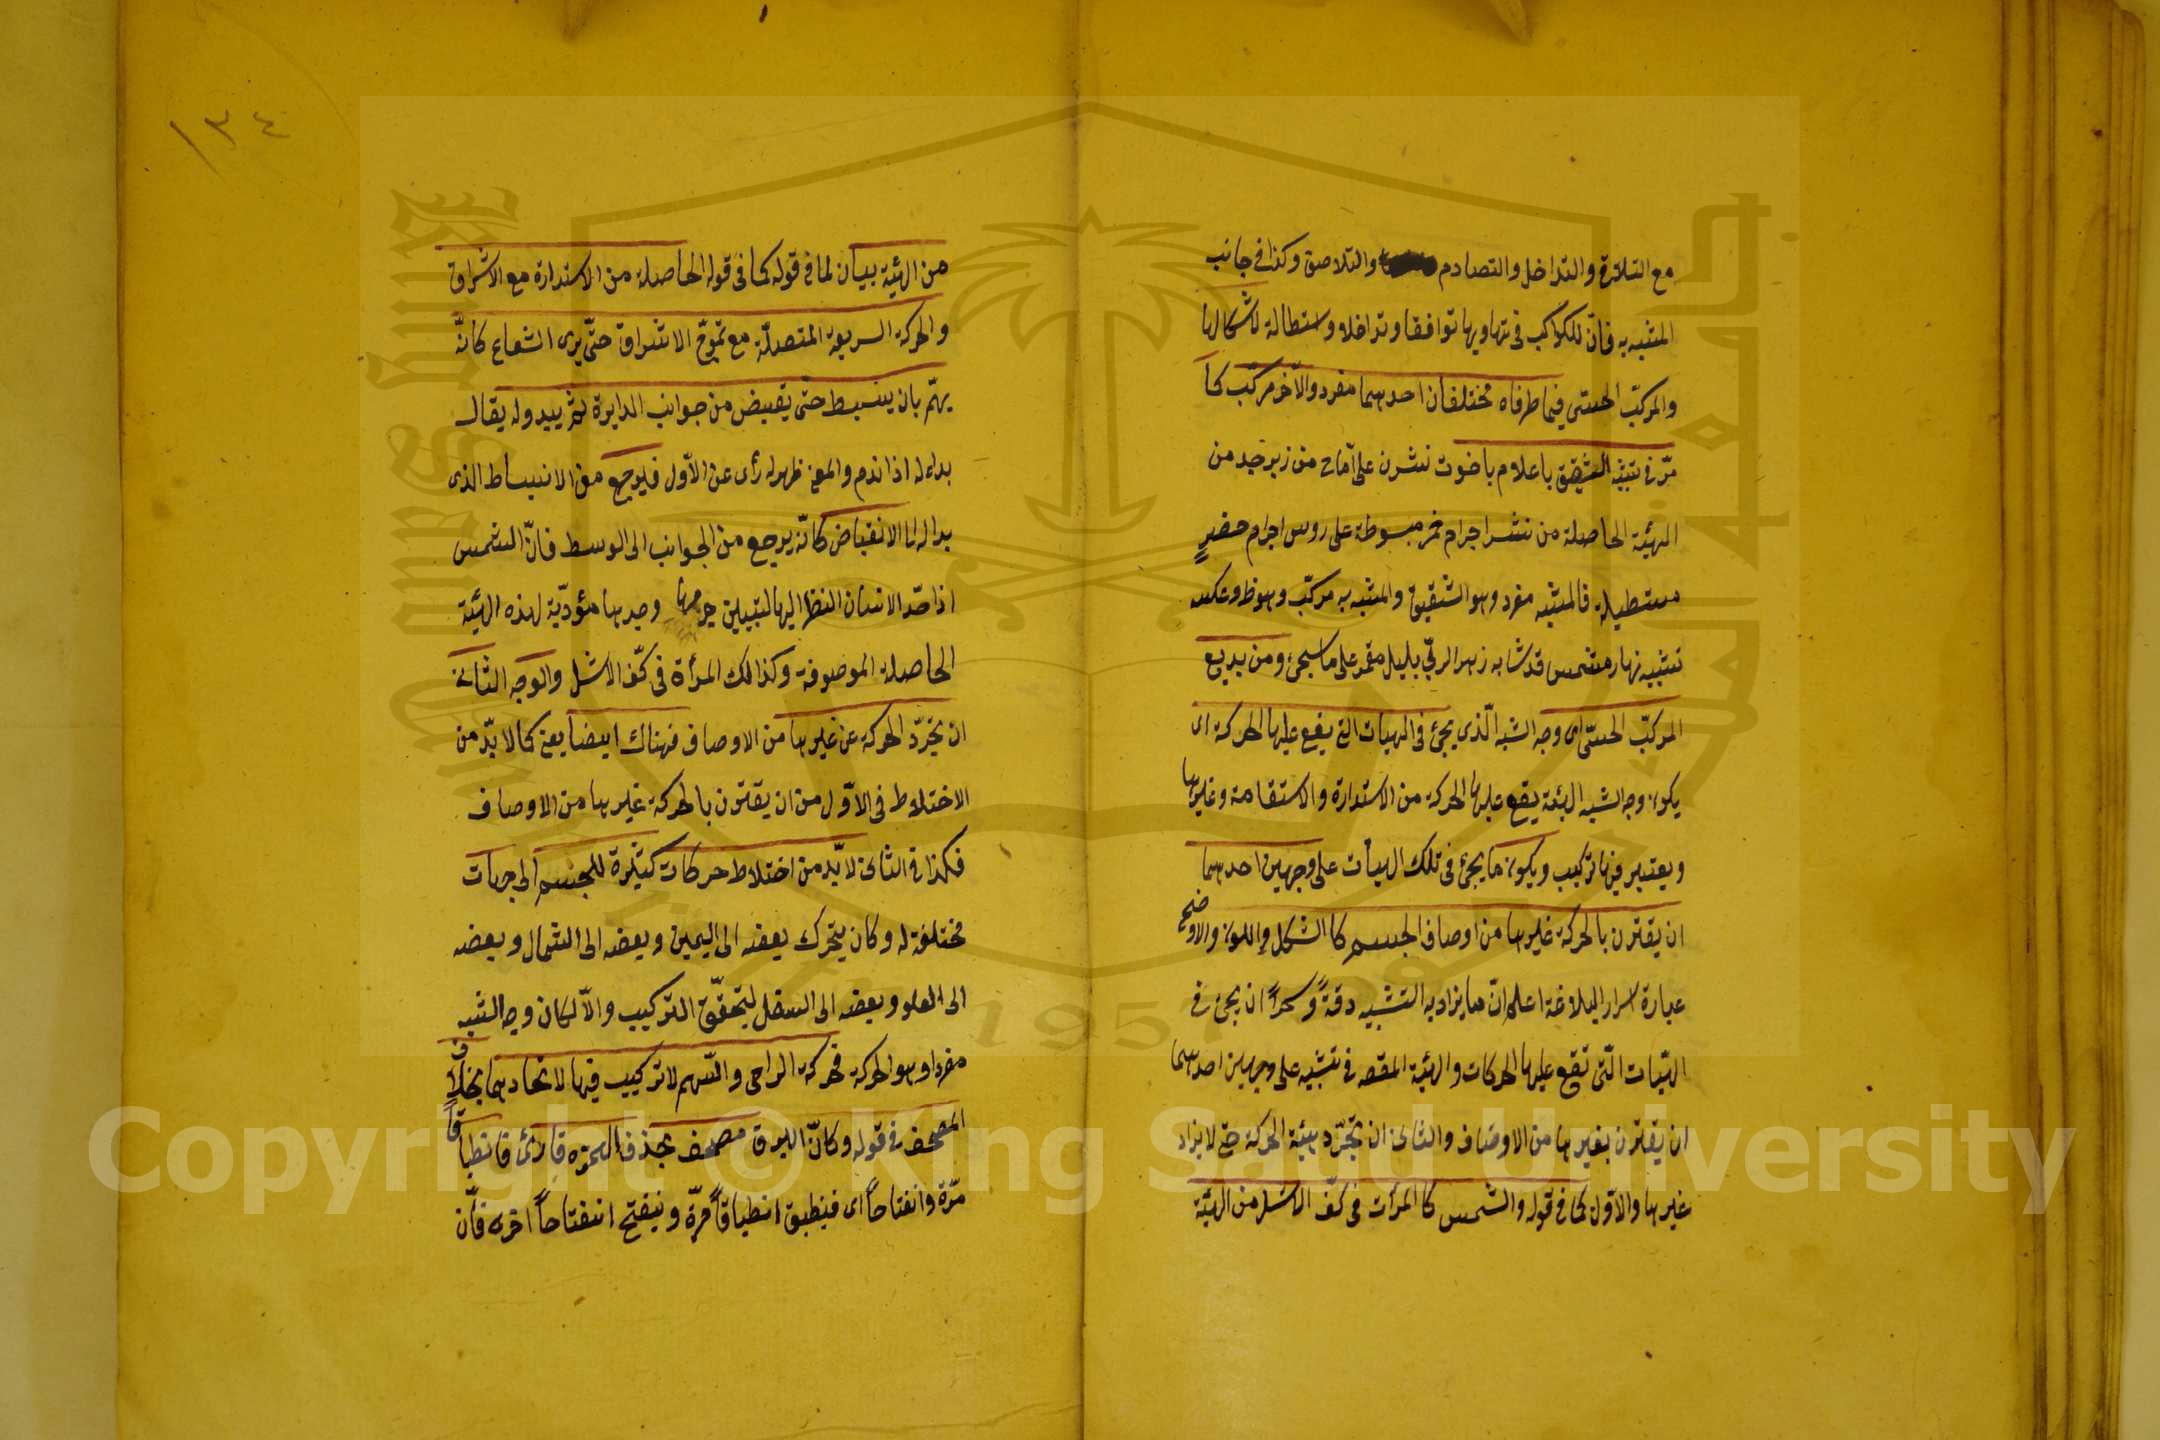 مع التلاقي والتداخل والتصادم والتلاصق وكذا في جانب
المشبه به فانّ للكواكب في تهاويها توافقا وتداخلا واستطالة لاشكالها
والمركّب الحسّى فيما طرفاه مختلفان احدهما مفرد والآخر مركّب كما
مرّ في تشبيه الشقيق باعلام ياقوت نشرن على رماح من زبرجد من
الهيئة الحاصلة من نشر اجرام حمر مبسوطة على روس اجرام خضرٍ
مستطيلة فالمشبه مفرد وهو الشقيق والمشبه به مركّب وهو ظ وعكسه
تشبيه نهار مشمس قد شابه زهر الربّى بليل مقمر على ما سيجئ ومن بديع
المركّب الحسّى اى وجه الشبه الّذى يجئ في الهيات التى يقع عليها الحركة اى
يكون وجه الشبه الهيئة يقع عليها الحركة من الاستدارة والاستقامة وغيرها
ويعتبر فيها تركيب ويكون ما يجئ في تلك الهيأت على وجهين احدهما
ان يقترن بالحركة غيرها من اوصاف الجسم كالشكل واللون والاوضح
عبارة اسرار البلاغة اعلم انّ مما يزاد به التشبيه دقةً وسحراً ان يجئ في
الهيّات الّتى تقع عليها الحركات والهيئة المقصه في تشبيه على وجهين احدهما
ان يقترن بغيرها من الاوصاف والثانى ان تجرّد هيئة الحركة حتى لا يزاد
غيرها والاوّل كما في قوله والشمس كالمرأت في كفّ الاشل من الهيئة
١٣٤
من الهيئة بيان لما في قوله كما في قوله الحاصلة من الاستدارة مع الاشراق
والحركة السريعة المتصلّة مع تموّج الاشراق حتّى يرى الشعاع كانّه
يهمّ بان ينبسط حتى يفيض من جوانب الدايرة ثمّ يبدو له يقال
بدا له اذا ندم والمعنى ظهر له رأى عن الاوّل فيرجع من الانبساط الذى
بدا له الى الانقباض كانّه يرجع من الجوانب الى الوسط فانّ الشمس
اذا حدّ الانسان النظر اليها ليتبين جرمها وجدها مؤدّية لهذه الهيئة
الحاصلة الموصوفة وكذالك المرأة في كفّ الاشل والوجه الثانى
ان تجرّد الحركة عن غيرها من الاوصاف فهناك ايضا يعنى كما لا بدّ من
الاختلاط في الاوّل من ان يقترن بالحركة غيرها من الاوصاف
فكذا في الثانى لا بدّ من اختلاط حركات كثيرة للجسم الى جهات
مختلفة له وكان يتحرك بعضه الى اليمين وبعضه الى الشمال وبعضه
الى العلو وبعضه الى السفل ليتحقّق التركيب والاّ لكان وجه الشبه
مفردا وهو الحركة فحركة الراحى والسّهم لا تركيب فيها لاتحادهما بخلاف
المصحف في قوله وكانّ البرق مصحف بحذف الهمزه قارئ فانطباقاً
مرّة وانفتاحاً اى فينطبق انطباقاً مرّة وينفتح انفتاحاً اخرى فانّ